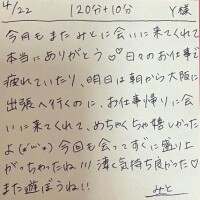 4/22 120分+10分 Y様
今月もまたみとに会いに来てくれて
本当にありがとう♡♡日々のお仕事で
疲れていたり、明日は朝から大阪に
出張へ行くのに、お仕事帰りに会
いに来てくれて、めちゃくちゃ嬉しかった
よ(*´ω`*)今回も会ってすぐに盛り上
がっちゃったね!!!凄く気持ち良かった♡
また遊ぼうね!!
みと